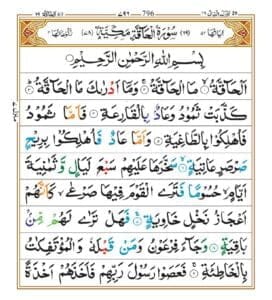 ٧٩٦ - 796
اٰيَاتُهَا ٥٢ (٦٩) سُوْرَةُ الْحَآقَّةِ مَكِّيَّةٌ (٧٨)
بِسْمِ اللّٰهِ الرَّحْمٰنِ الرَّحِيْمِ
اَلْحَآقَّةُ ۙ۝ مَا الْحَآقَّةُ ۚ۝ وَمَآ اَدْرٰىكَ مَا الْحَآقَّةُ ؕ۝
كَذَّبَتْ ثَمُوْدُ وَعَادٌۢ بِالْقَارِعَةِ ۝ فَاَمَّا ثَمُوْدُ
فَاُهْلِكُوْا بِالطَّاغِيَةِ ۝ وَاَمَّا عَادٌ فَاُهْلِكُوْا بِرِيْحٍ
صَرْصَرٍ عَاتِيَةٍ ۙ۝ سَخَّرَهَا عَلَيْهِمْ سَبْعَ لَيَالٍ وَّثَمٰنِيَةَ
اَيَّامٍ ۙ حُسُوْمًا فَتَرَى الْقَوْمَ فِيْهَا صَرْعٰى ۙ كَاَنَّهُمْ
اَعْجَازُ نَخْلٍ خَاوِيَةٍ ۚ۝ فَهَلْ تَرٰى لَهُمْ مِّنْۢ
بَاقِيَةٍ ۝ وَجَآءَ فِرْعَوْنُ وَمَنْ قَبْلَهٗ وَالْمُؤْتَفِكٰتُ
بِالْخَاطِئَةِ ۚ۝ فَعَصَوْا رَسُوْلَ رَبِّهِمْ فَاَخَذَهُمْ اَخْذَةً